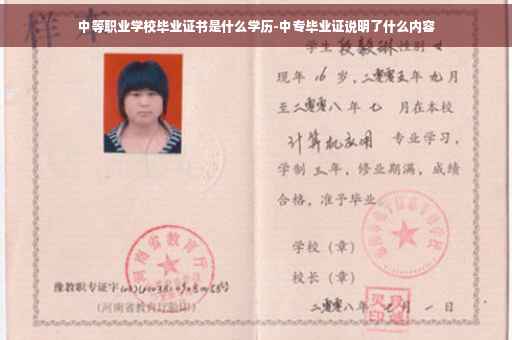 中等职业学校毕业证书是什么学历-中专毕业证说明了什么内容
样本
学生 段毅琳 性别 女
现年 16 岁，二零零五年 九月
至二零零八年 七 月在本校
计算机应用 专业学习，
学制 三 年，修业期满，成绩
合格，准予毕业。
学校（章）
校长（章）
二零零八年 七 月 一 日
河南省教育厅
豫教职专证字
(河南省教育厅验印)